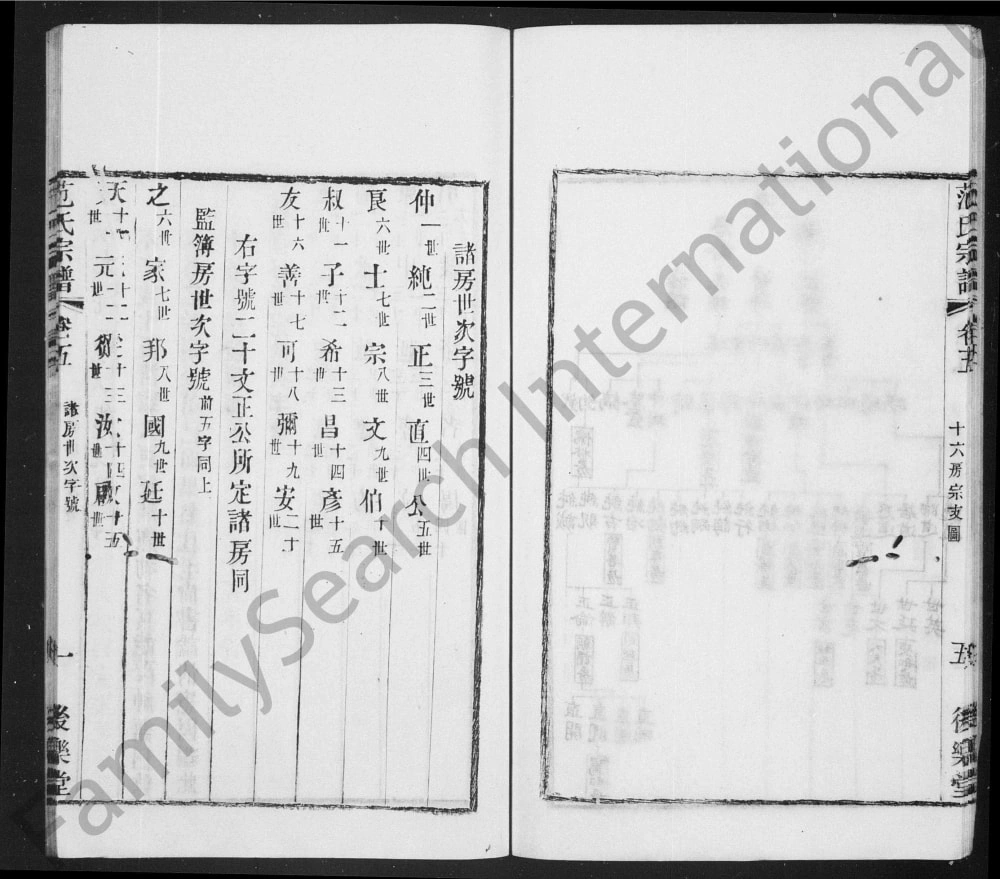 范氏宗譜 卷五 十六房宗支圖 五 後樂堂
諸房世次字號
仲一世 純二世 正三世 直四世 公五世
良六世 士七世 宗八世 文九世 伯十世
叔十一世 子十二世 希十三世 昌十四世 彥十五世
友十六世 善十七世 可十八世 彌十九世 安二十世
右字號二十文正公所定諸房同
監簿房世次字號前五字同上
之六世 家七世 邦八世 國九世 延十世
天十一世 元十二世 十三世 汝十四世 十五世
范氏宗譜 卷五 諸房世次字號 一 後樂堂
FamilySearch International